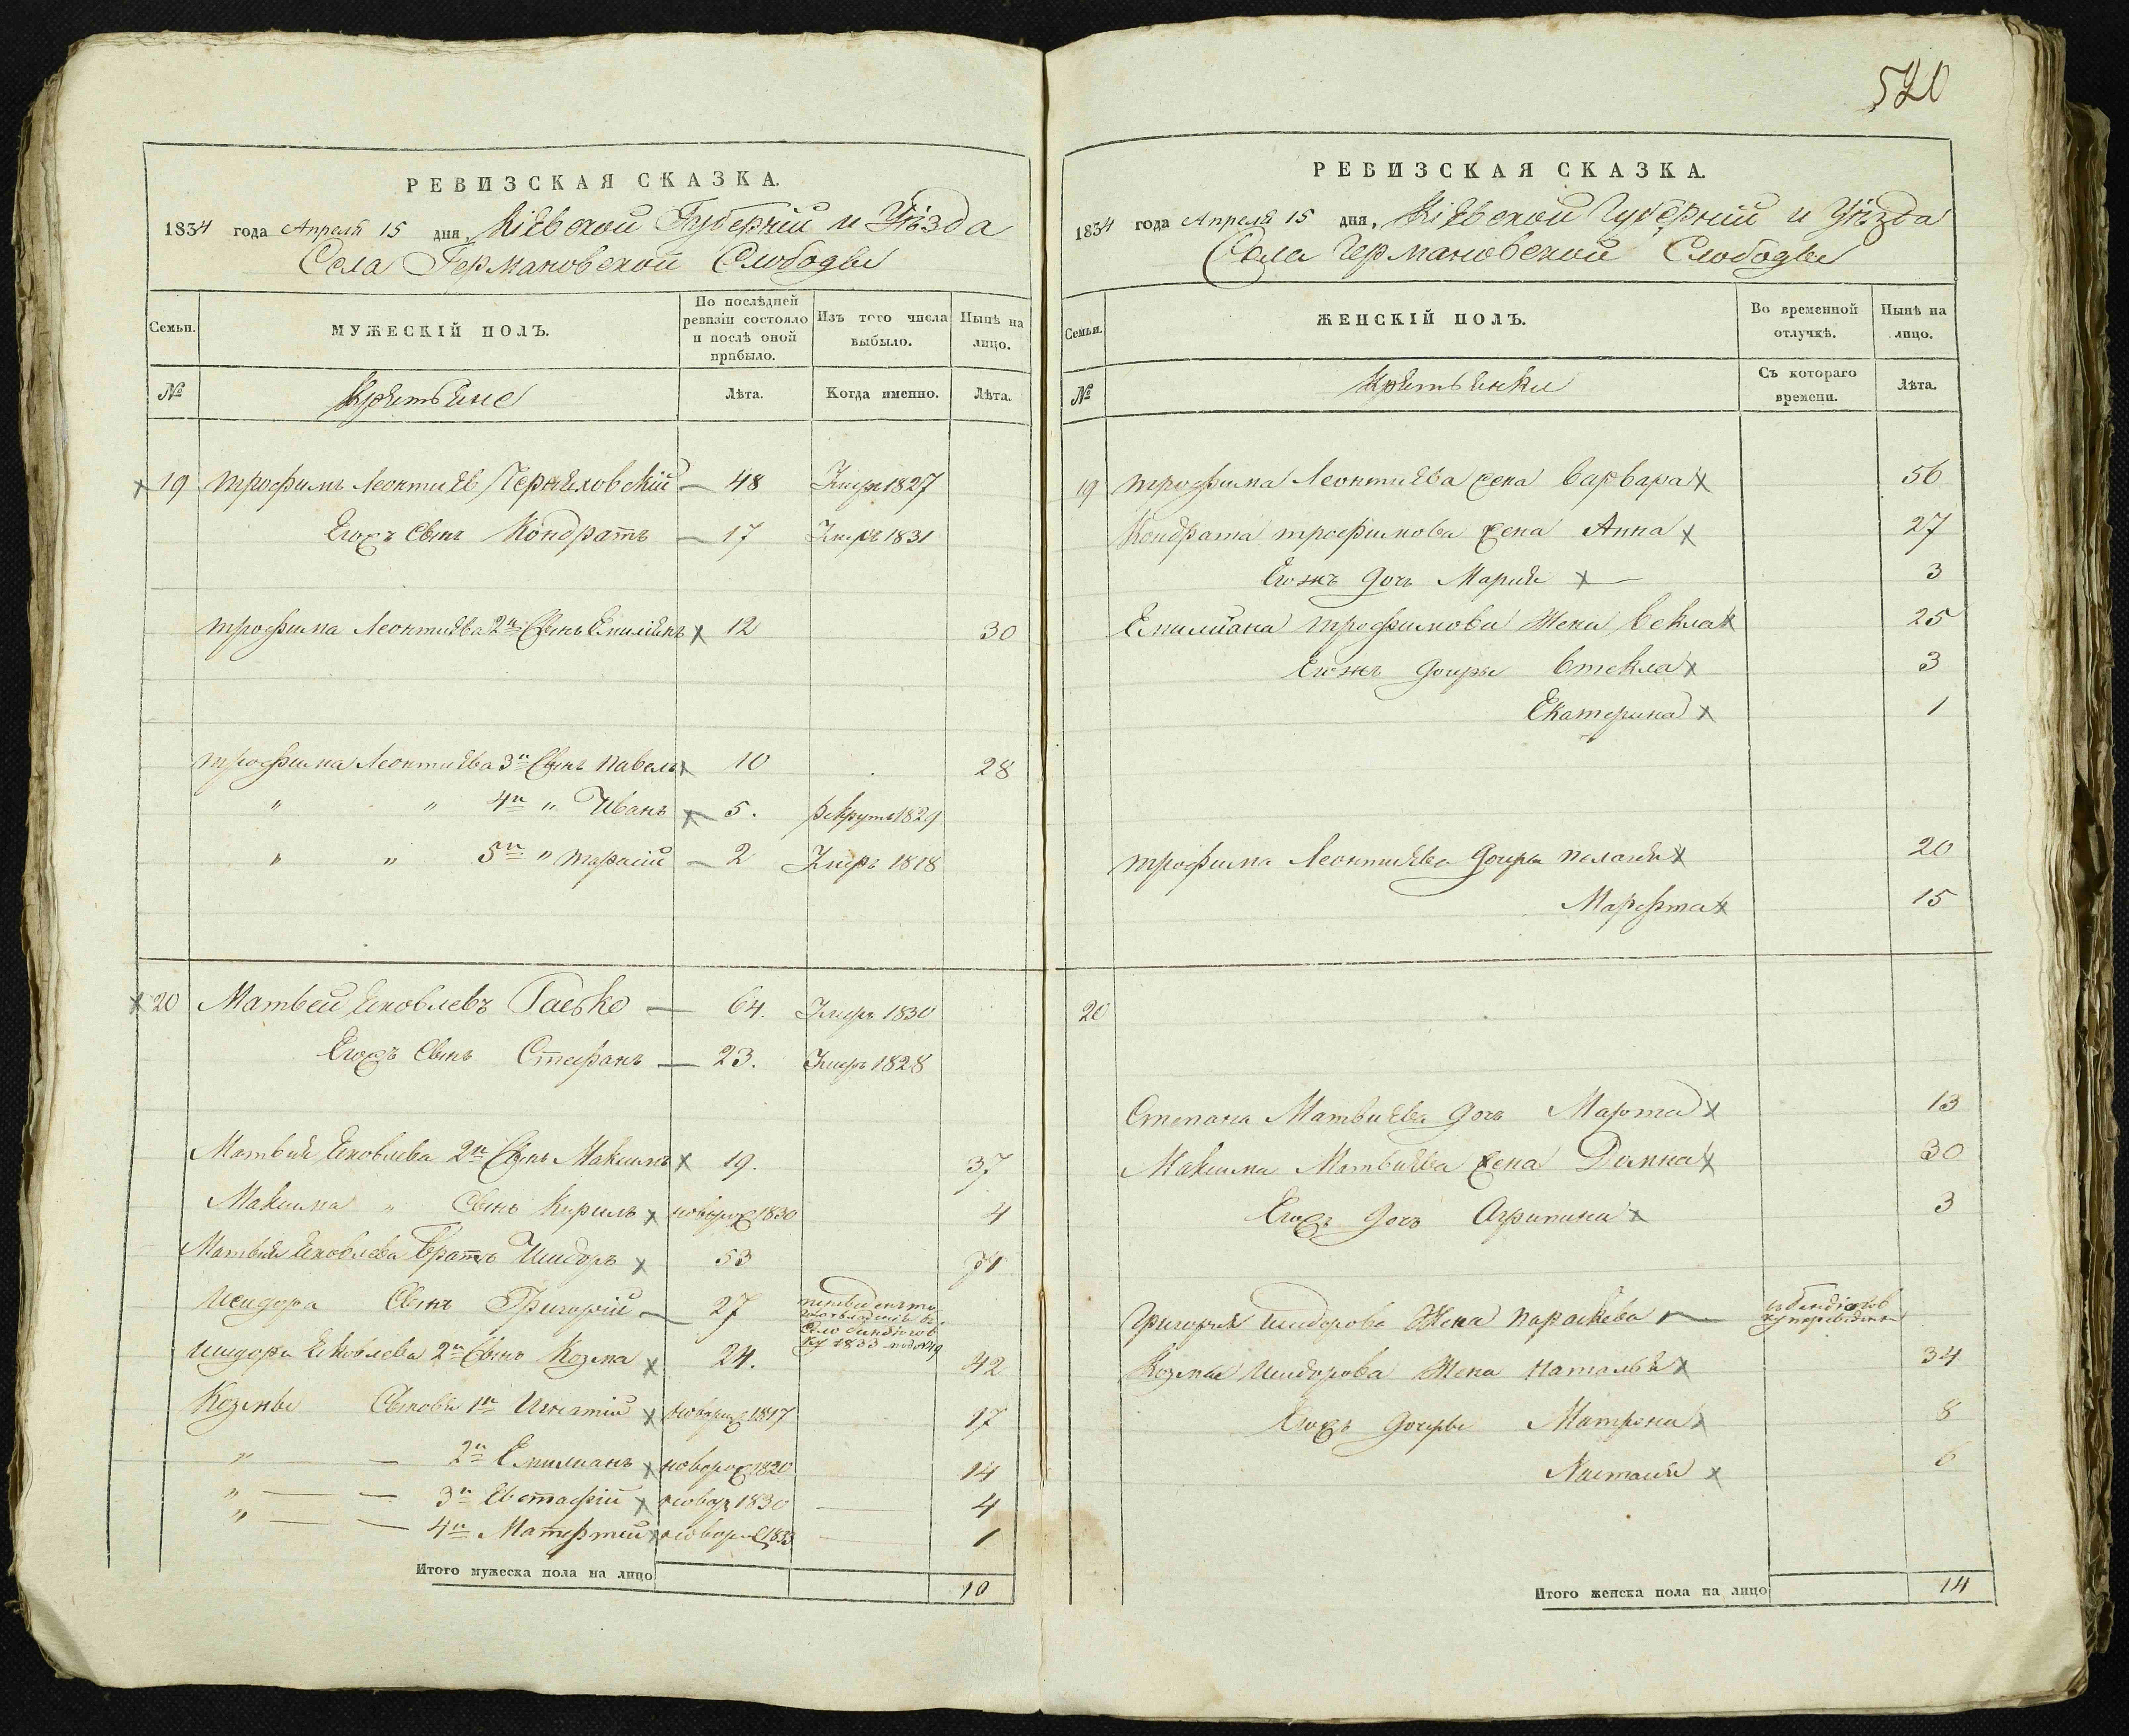 520
РЕВИЗСКАЯ СКАЗКА.
1834 года Апреля 15 дня, Кіевской Губерніи и Уѣзда
Села Германовской Слободы
Семьи. МУЖЕСКІЙ ПОЛЪ. По послѣдней ревизіи состояло и послѣ оной прибыло. Изъ того числа выбыло. Нынѣ на лицо.
№ Крестьяне Лѣта. Когда именно. Лѣта.
19 Трофимъ Леонтиев Черняховскій 48 Умеръ 1827
Егожъ Сынъ Кондратъ 17 Умеръ 1831
Трофима Леонтиева 2й Сынъ Емиліянъ 12 30
Трофима Леонтиева 3й Сынъ Павелъ 10 28
" " 4й " Иванъ 5. рекрутъ 1829
" " 5й " Тарасій 2 Умеръ 1818
20 Матвей Яковлевъ Гасько 64. Умеръ 1830
Егожъ Сынъ Стефанъ 23. Умеръ 1828
Матвия Яковлева 2й Сынъ Максимъ 19. 37
Максима " Сынъ Кирилъ новорож 1830 4
Матвия Яковлева Братъ Исидоръ 53 71
Исидора Сынъ Григорій 27 село 1833 под №
Исидора Яковлева 2й Сынъ Козма 24. 42
Козмы Сыновя 1й Игнатій новорож 1817 17
" — — 2й Емилианъ новорож 1820 14
" — — 3й Евстафій новор 1830 4
" — — 4й новорож 1833 1
Итого мужеска пола на лицо 10
РЕВИЗСКАЯ СКАЗКА.
1834 года Апреля 15 дня, Кіевской Губерніи и Уѣзда
Села Германовской Слободы
Семьи. ЖЕНСКІЙ ПОЛЪ. Во временной отлучкѣ. Нынѣ на лицо.
№ Крестьянки Съ котораго времени. Лѣта.
19 Трофима Леонтиева жена Варвара 56
Кондрата Трофимова жена Анна 27
Егожъ дочь Мария 3
Емилиана Трофимова Жена Векла 25
Егожъ дочеры Втекла 3
Екатерина 1
Трофима Леонтиева дочеры Пелагия 20
Марфта 15
20
Степана Матвиева дочь Марта 13
Максима Матвиева жена Домна 30
Егожъ дочь Агрипина 3
Григория Исидорова Жена Параскева
Козмы Исидорова Жена Наталья 34
Егожъ дочеры Матрона 8
Настасия 6
Итого женска пола на лицо 14